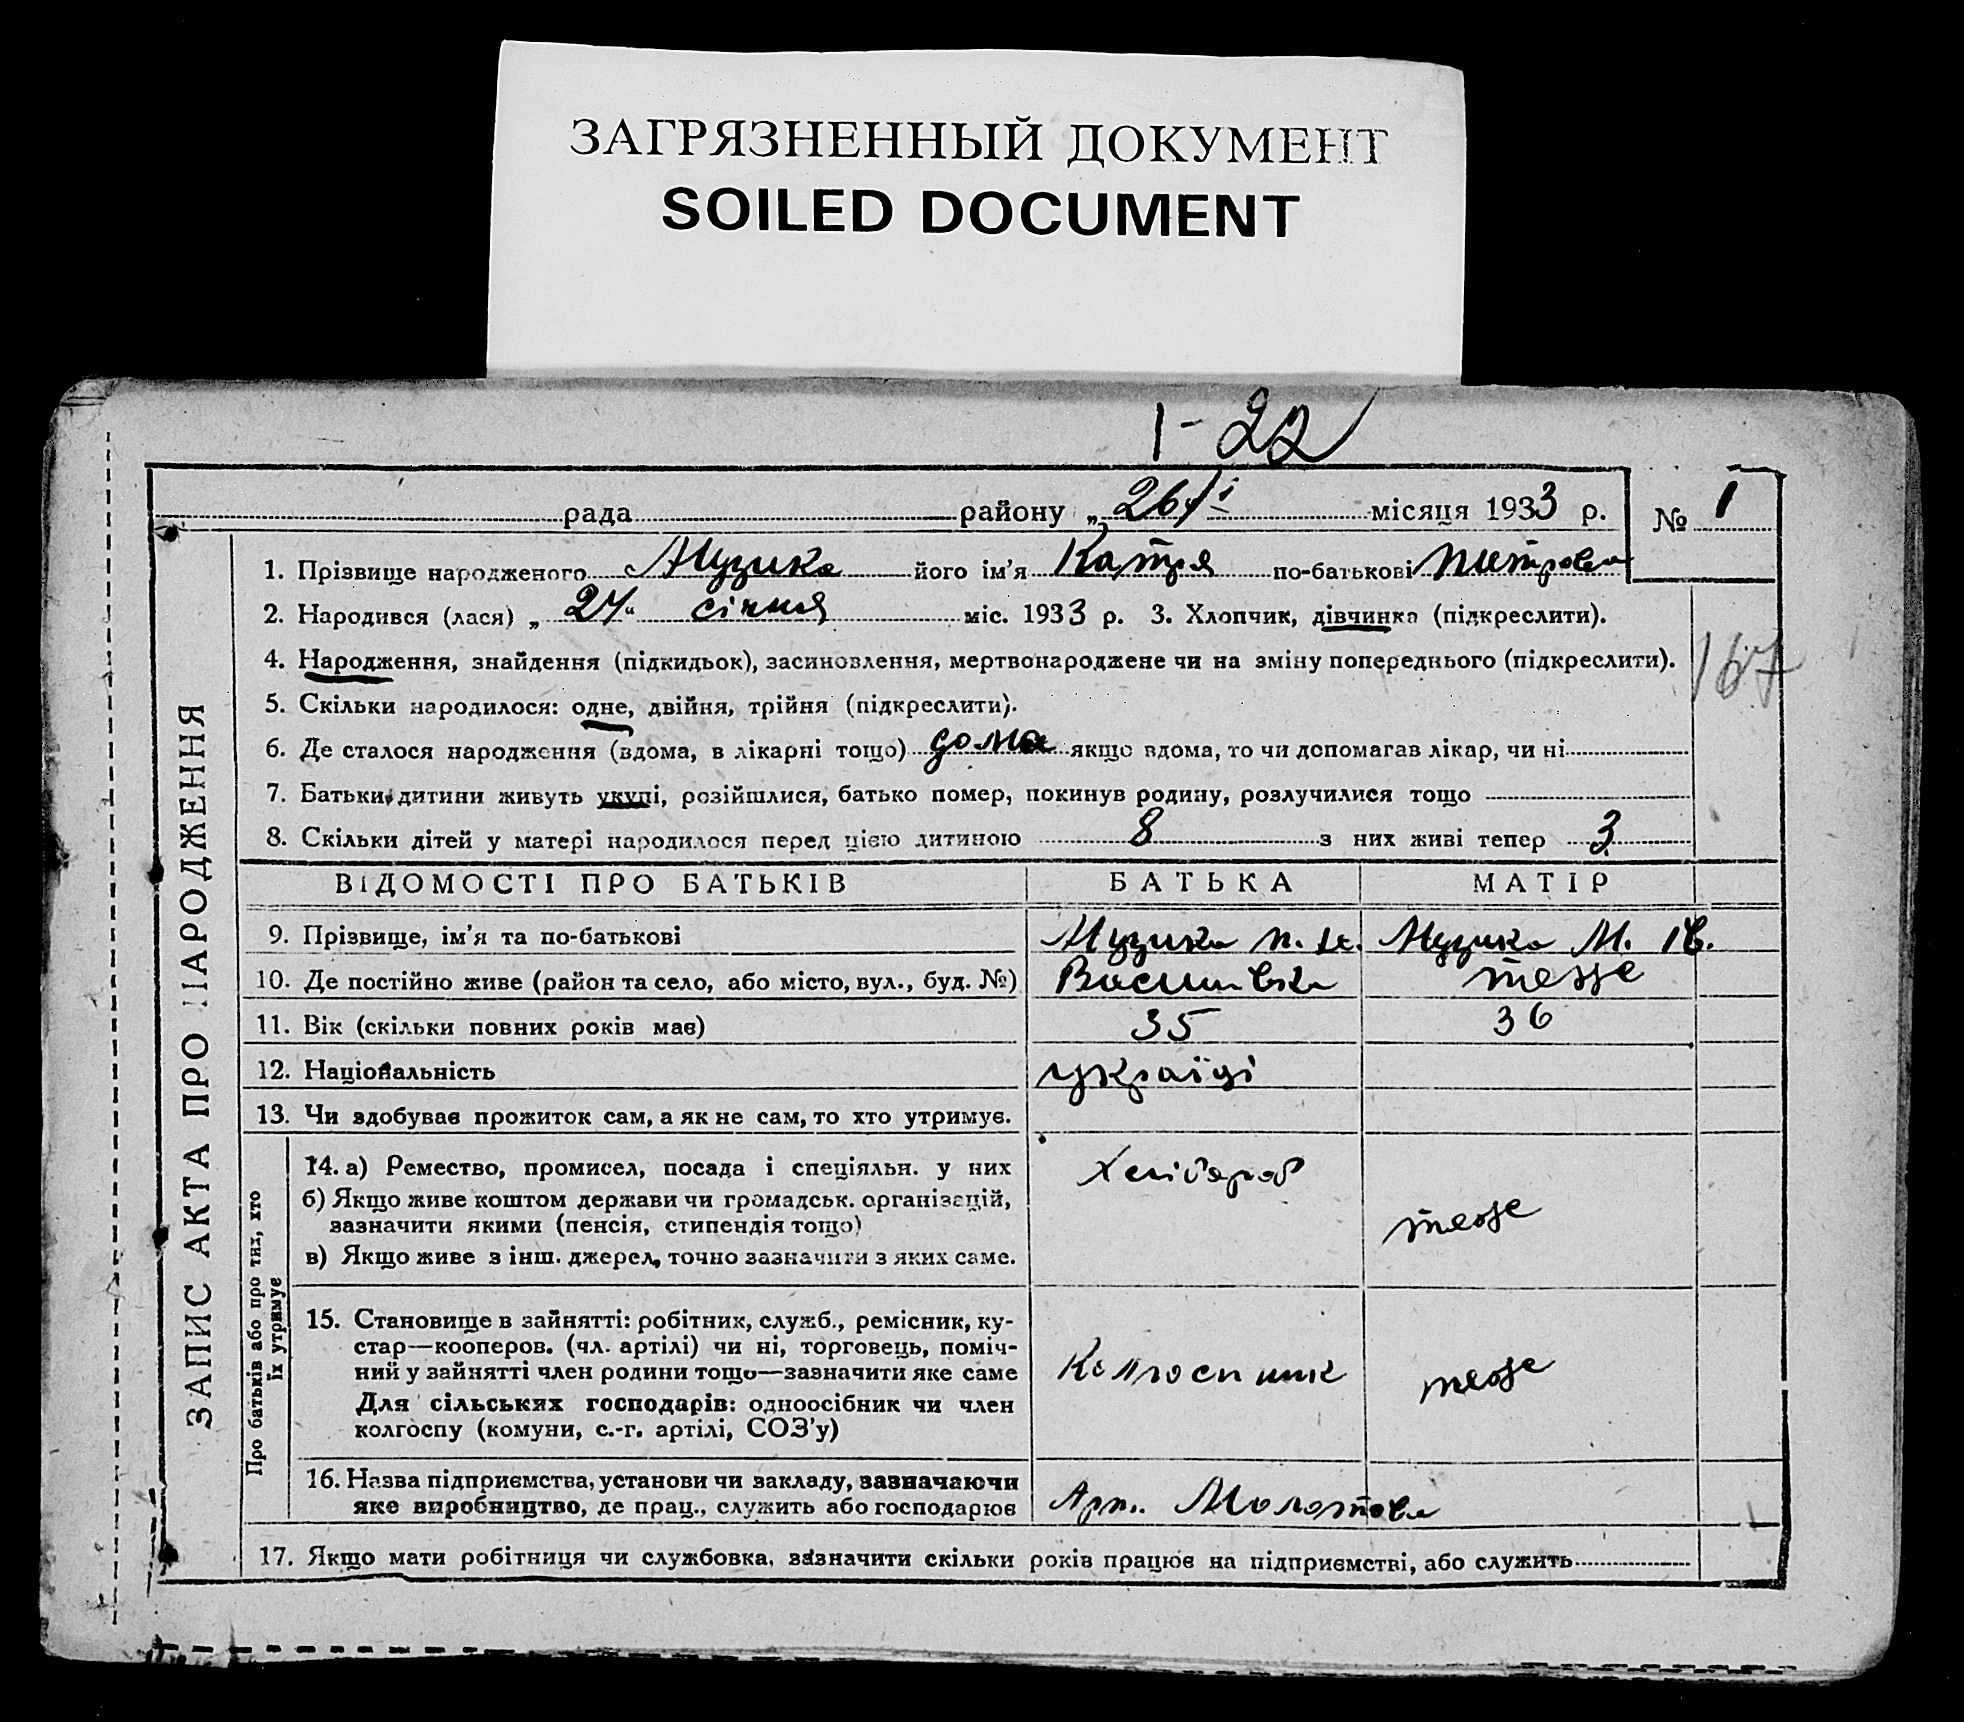 ЗАГРЯЗНЕННЫЙ ДОКУМЕНТ
SOILED DOCUMENT
1-22
рада района „26/І місяця 1933 р. № 1
1. Прізвище народженого Музика його ім’я Катря по-батькові Петровна
2. Народився (лася) „24“ січня міс. 1933 р. 3. Хлопчик, дівчинка (підкреслити).
4. Народження, знайдення (підкидьок), засиновлення, мертвонароджене чи на зміну попереднього (підкреслити).
167
5. Скільки народилося: одне, двійня, трійня (підкреслити).
6. Де сталося народження (вдома, в лікарні тощо) дома якщо вдома, то чи допомагав лікар, чи ні
7. Батьки дитини живуть укупі, розійшлися, батько помер, покинув родину, розлучилися тощо
8. Скільки дітей у матері народилося перед цією дитиною 8 з них живі тепер 3
ЗАПИС АКТА ПРО НАРОДЖЕННЯ
ВІДОМОСТІ ПРО БАТЬКІВ БАТЬКА МАТІР
9. Прізвище, ім’я та по-батькові Музика П. Музика М. Ів.
10. Де постійно живе (район та село, або місто, вул., буд. №) Василівка теж
11. Вік (скільки повних років має) 35 36
12. Національність україці
13. Чи здобуває прожиток сам, а як не сам, то хто утримує.
Про батьків або про тих, хто
їх утримує
14. а) Ремество, промисел, посада і спеціяльн. у них Хлібороб
б) Якщо живе коштом держави чи громадськ. організацій, теже
зазначити якими (пенсія, стипендія тощо)
в) Якщо живе з інш. джерел, точно зазначити з яких саме.
15. Становище в зайнятті: робітник, служб., ремісник, ку-
стар—кооперов. (чл. артілі) чи ні, торговець, поміч-
ний у зайнятті член родини тощо—зазначити яке саме Колгоспник теже
Для сільських господарів: одноосібник чи член
колгоспу (комуни, с.-г. артілі, СОЗ’у)
16. Назва підприємства, установи чи закладу, зазначаючи
яке виробництво, де прац., служить або господарює Арт. Молотова
17. Якщо мати робітниця чи службовка, зазначити скільки років працює на підприємстві, або служить